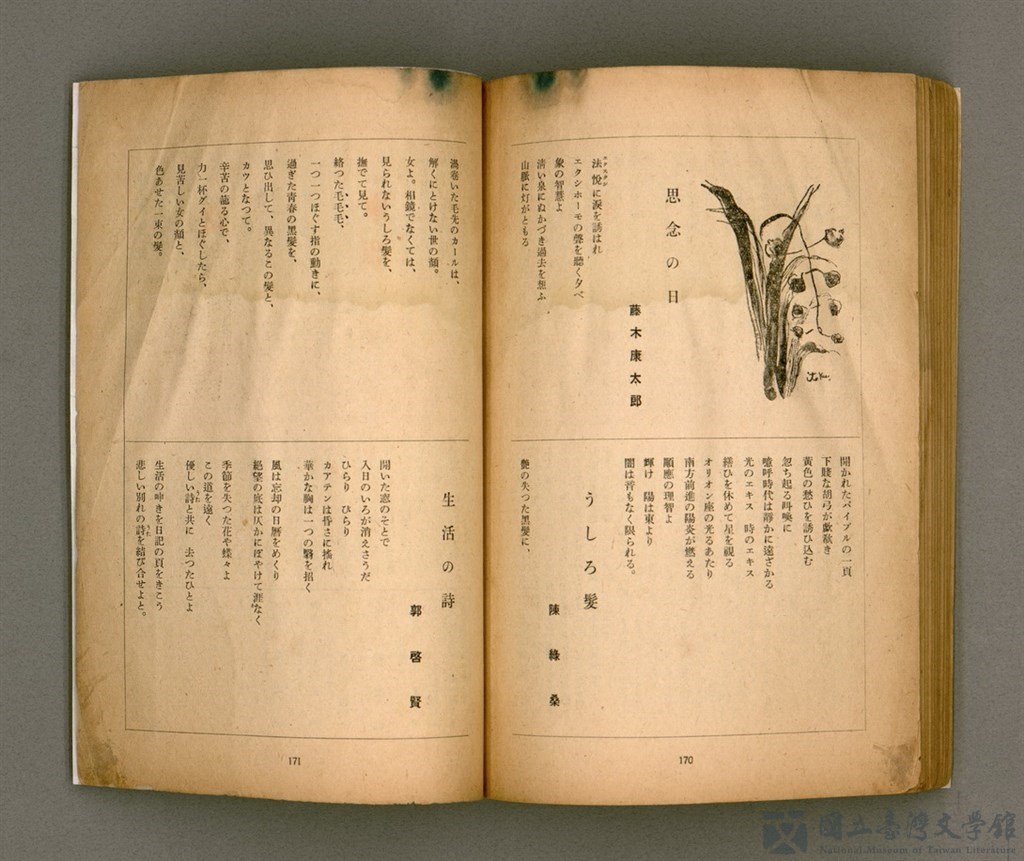 思念の日
藤木康太郎
法悅に淚を誘はれ
エクシホーモの聲を聽く夕べ
象の智慧よ
淸い泉にぬかづき過去を想ふ
山脈に灯がともる
開かれたバイブルの一頁
下賤な胡弓が歔欷き
黃色の愁ひを誘ひ込む
忽ち起る叫喚に
噫呼時代は靜かに遠ざかる
光のエキス　時のエキス
耕ひを休めて星を視る
オリオン座の光るあたり
南方前進の陽炎が燃える
順應の理智よ
輝け　陽は東より
闇は音もなく限られる。
うしろ髮
陳綠桑
艷の失つた黑髮に、
170
渦卷いた毛先のカールは、
解くにとけない世の顏。
女よ。相鏡でなくては、
見られないうしろ髮を、
撫でて見て。
絡つた毛毛毛、
一つ一つほぐす指の動きに、
過ぎた靑春の黑髮を、
思ひ出して、異なるこの髮と、
カツとなつて。
辛苦の籠る心で、
力一杯グイとほぐしたら、
見苦しい女の顏と、
色あせた一束の髮。
生活の詩
郭啓賢
開いた窓のそとで
入日のいろが消えさうだ
ひらり　ひらり
カアテンは昏さに搖れ
華かな胸は一つの翳を招く
風は忘却の日曆をめくり
絕望の底は仄かにぼやけて涯なく
季節を失つた花や蝶々よ
この道を遠く
優しい詩と共に　去つたひとよ
生活の呻きを日記の頁をきこう
悲しい別れの詩を結び合せよと。
171
國立臺灣文學館
National Museum of Taiwan Literature